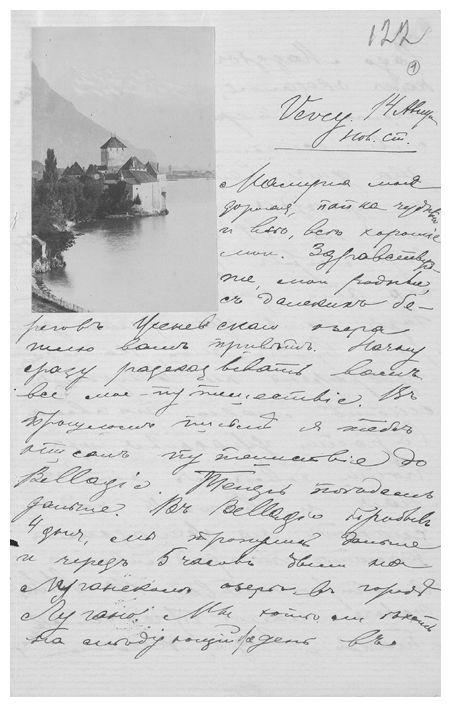 122
1
Vevey. 14 Авг
нов. ст.
Мамуна моя
дорогая, папка
и вы, все хорошіе
мои. Здравствуй-
те, мои родные,
съ далекихъ бе-
реговъ Женевскаго озера
шлю вамъ привѣтъ. Начну
сразу разсказывать вамъ
все мое путешествіе. Въ
прошломъ письмѣ я
описалъ путешествіе до
Bellagio. Теперь
дальше. Въ Bellagio пробывъ
4 дня, мы тронулись дальше
и черезъ 5 часовъ были на
Луганскомъ озерѣ, въ городѣ
Лугано. Мы хотѣли ѣхать
на слѣдующій день въ